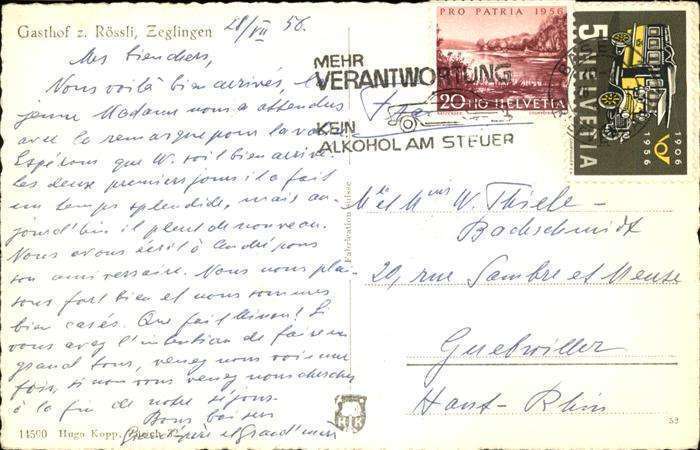 Gasthof z. Rössli, Zeglingen
28/VII 56.
Mes bien chers,
Nous voilà bien arrivés, la
jeune Madame nous a attendus
avec la remarque pour la
Espérons que W. soit bien arrivé.
Les deux premiers jours il a fait
un temps splendide, mais au-
jourd'hui il pleut de nouveau.
Nous avons écrit à André pour
son anniversaire. Nous nous plai-
sons fort bien et nous sommes
bien casés. Que fait ? Si
vous avez l'intention de faire un
grand tour, venez nous voir une
fois, si non vous venez nous chercher
à la fin de notre séjour.
Bons baisers
Grand-père et Grand'mère
14590 Hugo Kopp,
Fabrication suisse
PRO PATRIA 1956
20+10 HELVETIA
5 HELVETIA
1906
1956
MEHR
VERANTWORTUNG
KEIN
ALKOHOL AM STEUER
Mr et Mme W. Thiele-
Bachschmidt
29, rue Sambre et Meuse
Guebwiller
Haut-Rhin
HK